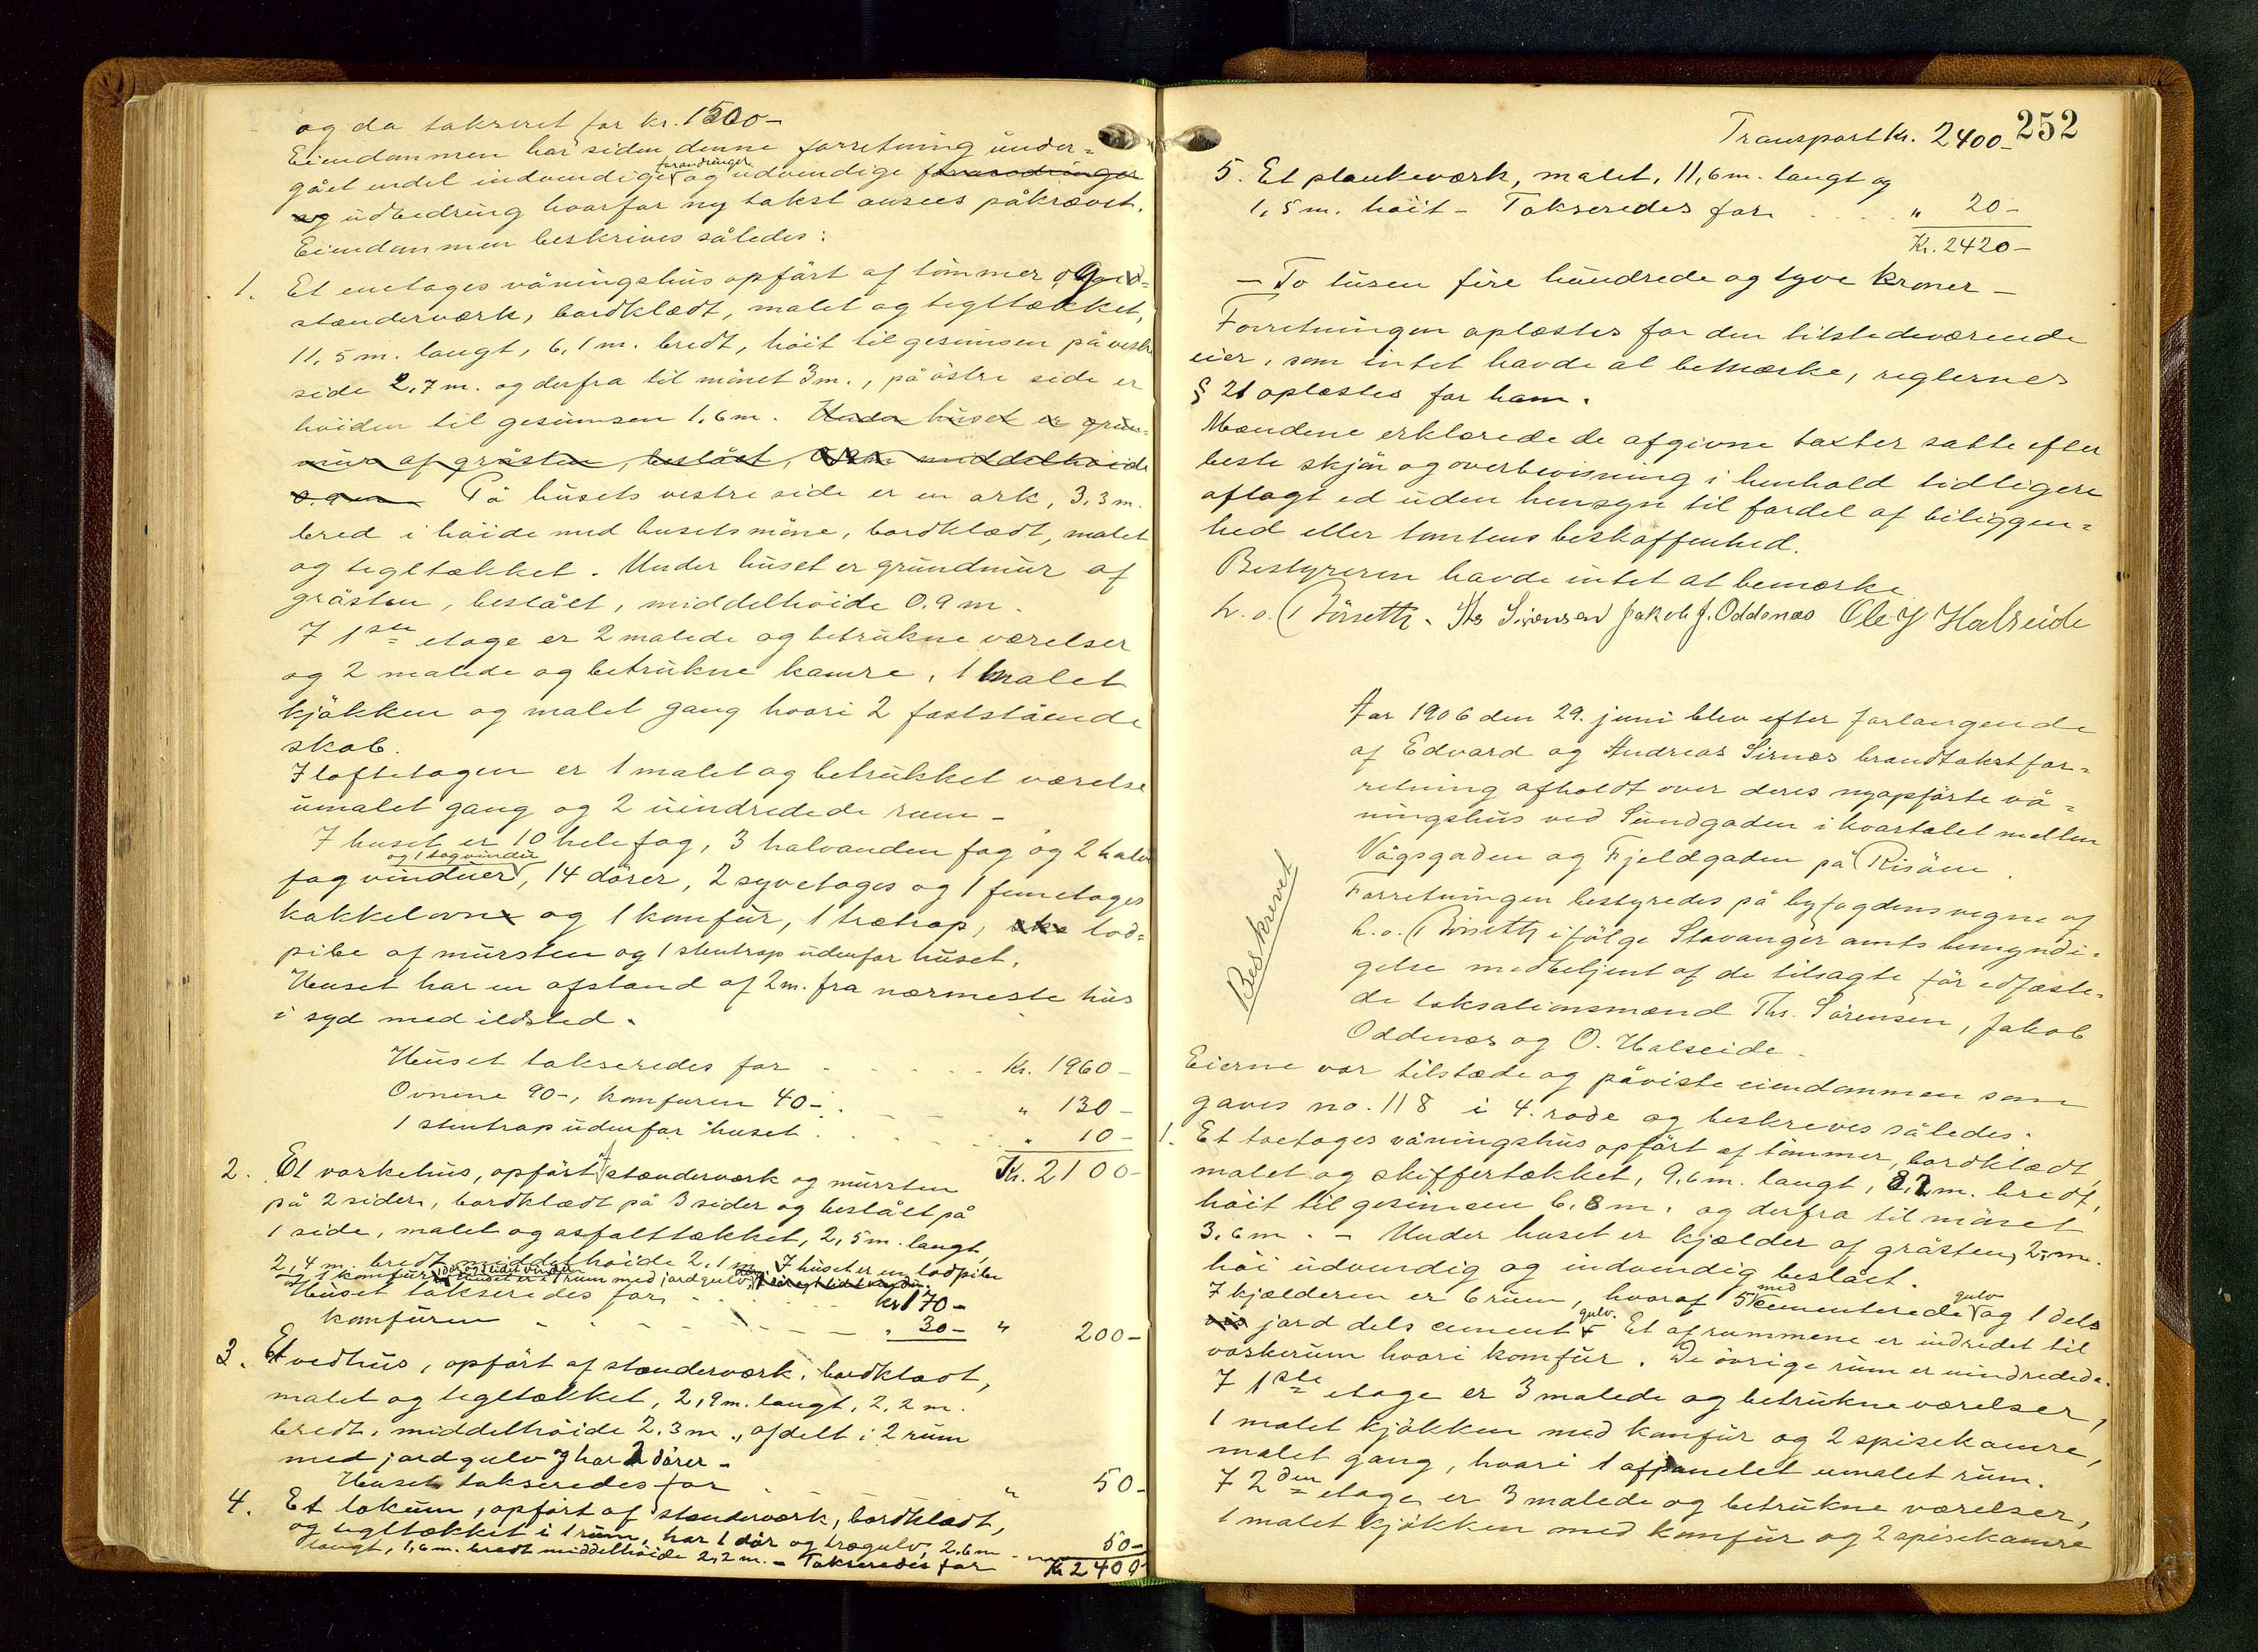 og da takseret for kr. 1500-
Eiendommen har siden denne forretning under-
gået endel indvendige forandringer og udvendige forandringer
og udbedring hvorfor ny takst ansees påkrævet.
Eiendommen beskrives således:
1. Et enetages våningshus opført af tømmer og
stænderværk, bordklædt, malet og tegltækket,
11,5 m. langt, 6,1 m. bredt, høit til gesimsen på vestre
side 2,7 m. og derfra til mønet 3 m., på østre side er
høiden til gesimsen 1,6 m. Under huset er grund-
mur af gråsten, beslået, middelhøide
0,9 m. På husets vestre side er en ark, 3,3 m.
bred i høide med husets møne, bordklædt, malet
og tegltækket. Under huset er grundmur af
gråsten, beslået, middelhøide 0.9 m.
I 1ste etage er 2 malede og betrukne værelser
og 2 malede og betrukne kamre, 1 malet
kjøkken og malet gang hvori 2 faststående
skab.
I loftetagen er 1 malet og betrukket værelse
umalet gang og 2 uindredede rum -
I huset er 10 hele fag, 3 halvanden fag og 2 halv
fag vinduer og 1 tagvindu, 14 dører, 2 syvetages og 1 femetages
kakkelovne og 1 komfur, 1 trætrap, lod-
pibe af mursten og 1 stentrap udenfor huset.
Huset har en afstand af 2 m. fra nærmeste hus
i syd med ildsted.
Huset takseredes for Kr. 1960-
Ovnene 90-, komfuren 40- " 130-
1 stentrap udenfor huset " 10-
Kr. 2100-
2. Et vaskehus, opført af stænderværk og mursten
på 2 sider, bordklædt på 3 sider og beslået på
1 side, malet og asfalttækket, 2,5 m. langt,
2,4 m. bredt middelhøide 2,1 m. I huset er en lodpibe
og 1 komfur, 1 dør og 1 lidet vindu. I huset er 1 rum med jordgulv
Huset takseredes for kr 170-
komfuren " 30- " 200-
3. Et vedhus, opført af stænderværk, bordklædt,
malet og tegltækket, 2,9 m. langt, 2,2 m.
bredt, middelhøide 2,3 m., afdelt i 2 rum
med jordgulv og har 2 dører -
Huset takseredes for " 50-
4. Et lokum, opført af stænderværk, bordklædt,
og tegltækket i 1 rum, har 1 dør og trægulv, 2,6 m
langt, 1,6 m. bredt middelhøide 2,2 m. - Takseredes for 50-
Kr 2400-
252
Transport kr. 2400-
5. Et plankeværk, malet, 11,6 m. langt og
1,5 m. høit - Takseredes for " 20-
Kr. 2420-
- To tusen fire hundrede og tyve kroner -
Forretningen oplæstes for den tilstedeværende
eier, som intet havde at bemærke, reglernes
§ 21 oplæstes for ham.
Mændene erklærede de afgivne taxter satte efter
beste skjøn og overbevisning i henhold tidligere
aflagt ed uden hensyn til fordel af beliggen-
hed eller tomtens beskaffenhed.
Bestyreren havde intet at bemærke
Ths Sørensen Jakob J. Oddenæs Ole J Halseide
Aar 1906 den 29. juni blev efter forlangende
af Edvard og Andreas Sirnæs brandtakstfor-
retning afholdt over deres nyopførte vå-
ningshus ved Sundgaden i kvartalet mellem
Vågsgaden og Fjeldgaden på Risøen.
Beskrevet
Forretningen bestyredes på byfogdens vegne af
ifølge Stavanger amts bemyndi-
gelse medbetjent af de tilsagte før edfæste-
de taksationsmænd Ths. Sørensen, Jakob
Oddenæs og O. Halseide.
Eierne var tilstede og påviste eiendommen som
gaves no. 118 i 4. rode og beskreves således:
1. Et toetages våningshus opført af tømmer, bordklædt,
malet og skiffertækket, 9,6 m. langt, 8,2 m. bredt,
høit til gesimsen 6,8 m. og derfra til mønet
3,6 m. - Under huset er kjælder af gråsten, 2, m.
høi udvendig og indvendig beslået.
I kjælderen er 6 rum, hvoraf 5 med cementerede gulv og 1 dels
jord dels cement gulv. Et af rummene er indredet til
vaskerum hvori komfur. De øvrige rum er uindredede.
I 1ste etage er 3 malede og betrukne værelser,
1 malet kjøkken med komfur og 2 spisekamre,
malet gang, hvori 1 afpanelet umalet rum.
I 2den etage er 3 malede og betrukne værelser,
1 malet kjøkken med komfur og 2 spisekamre